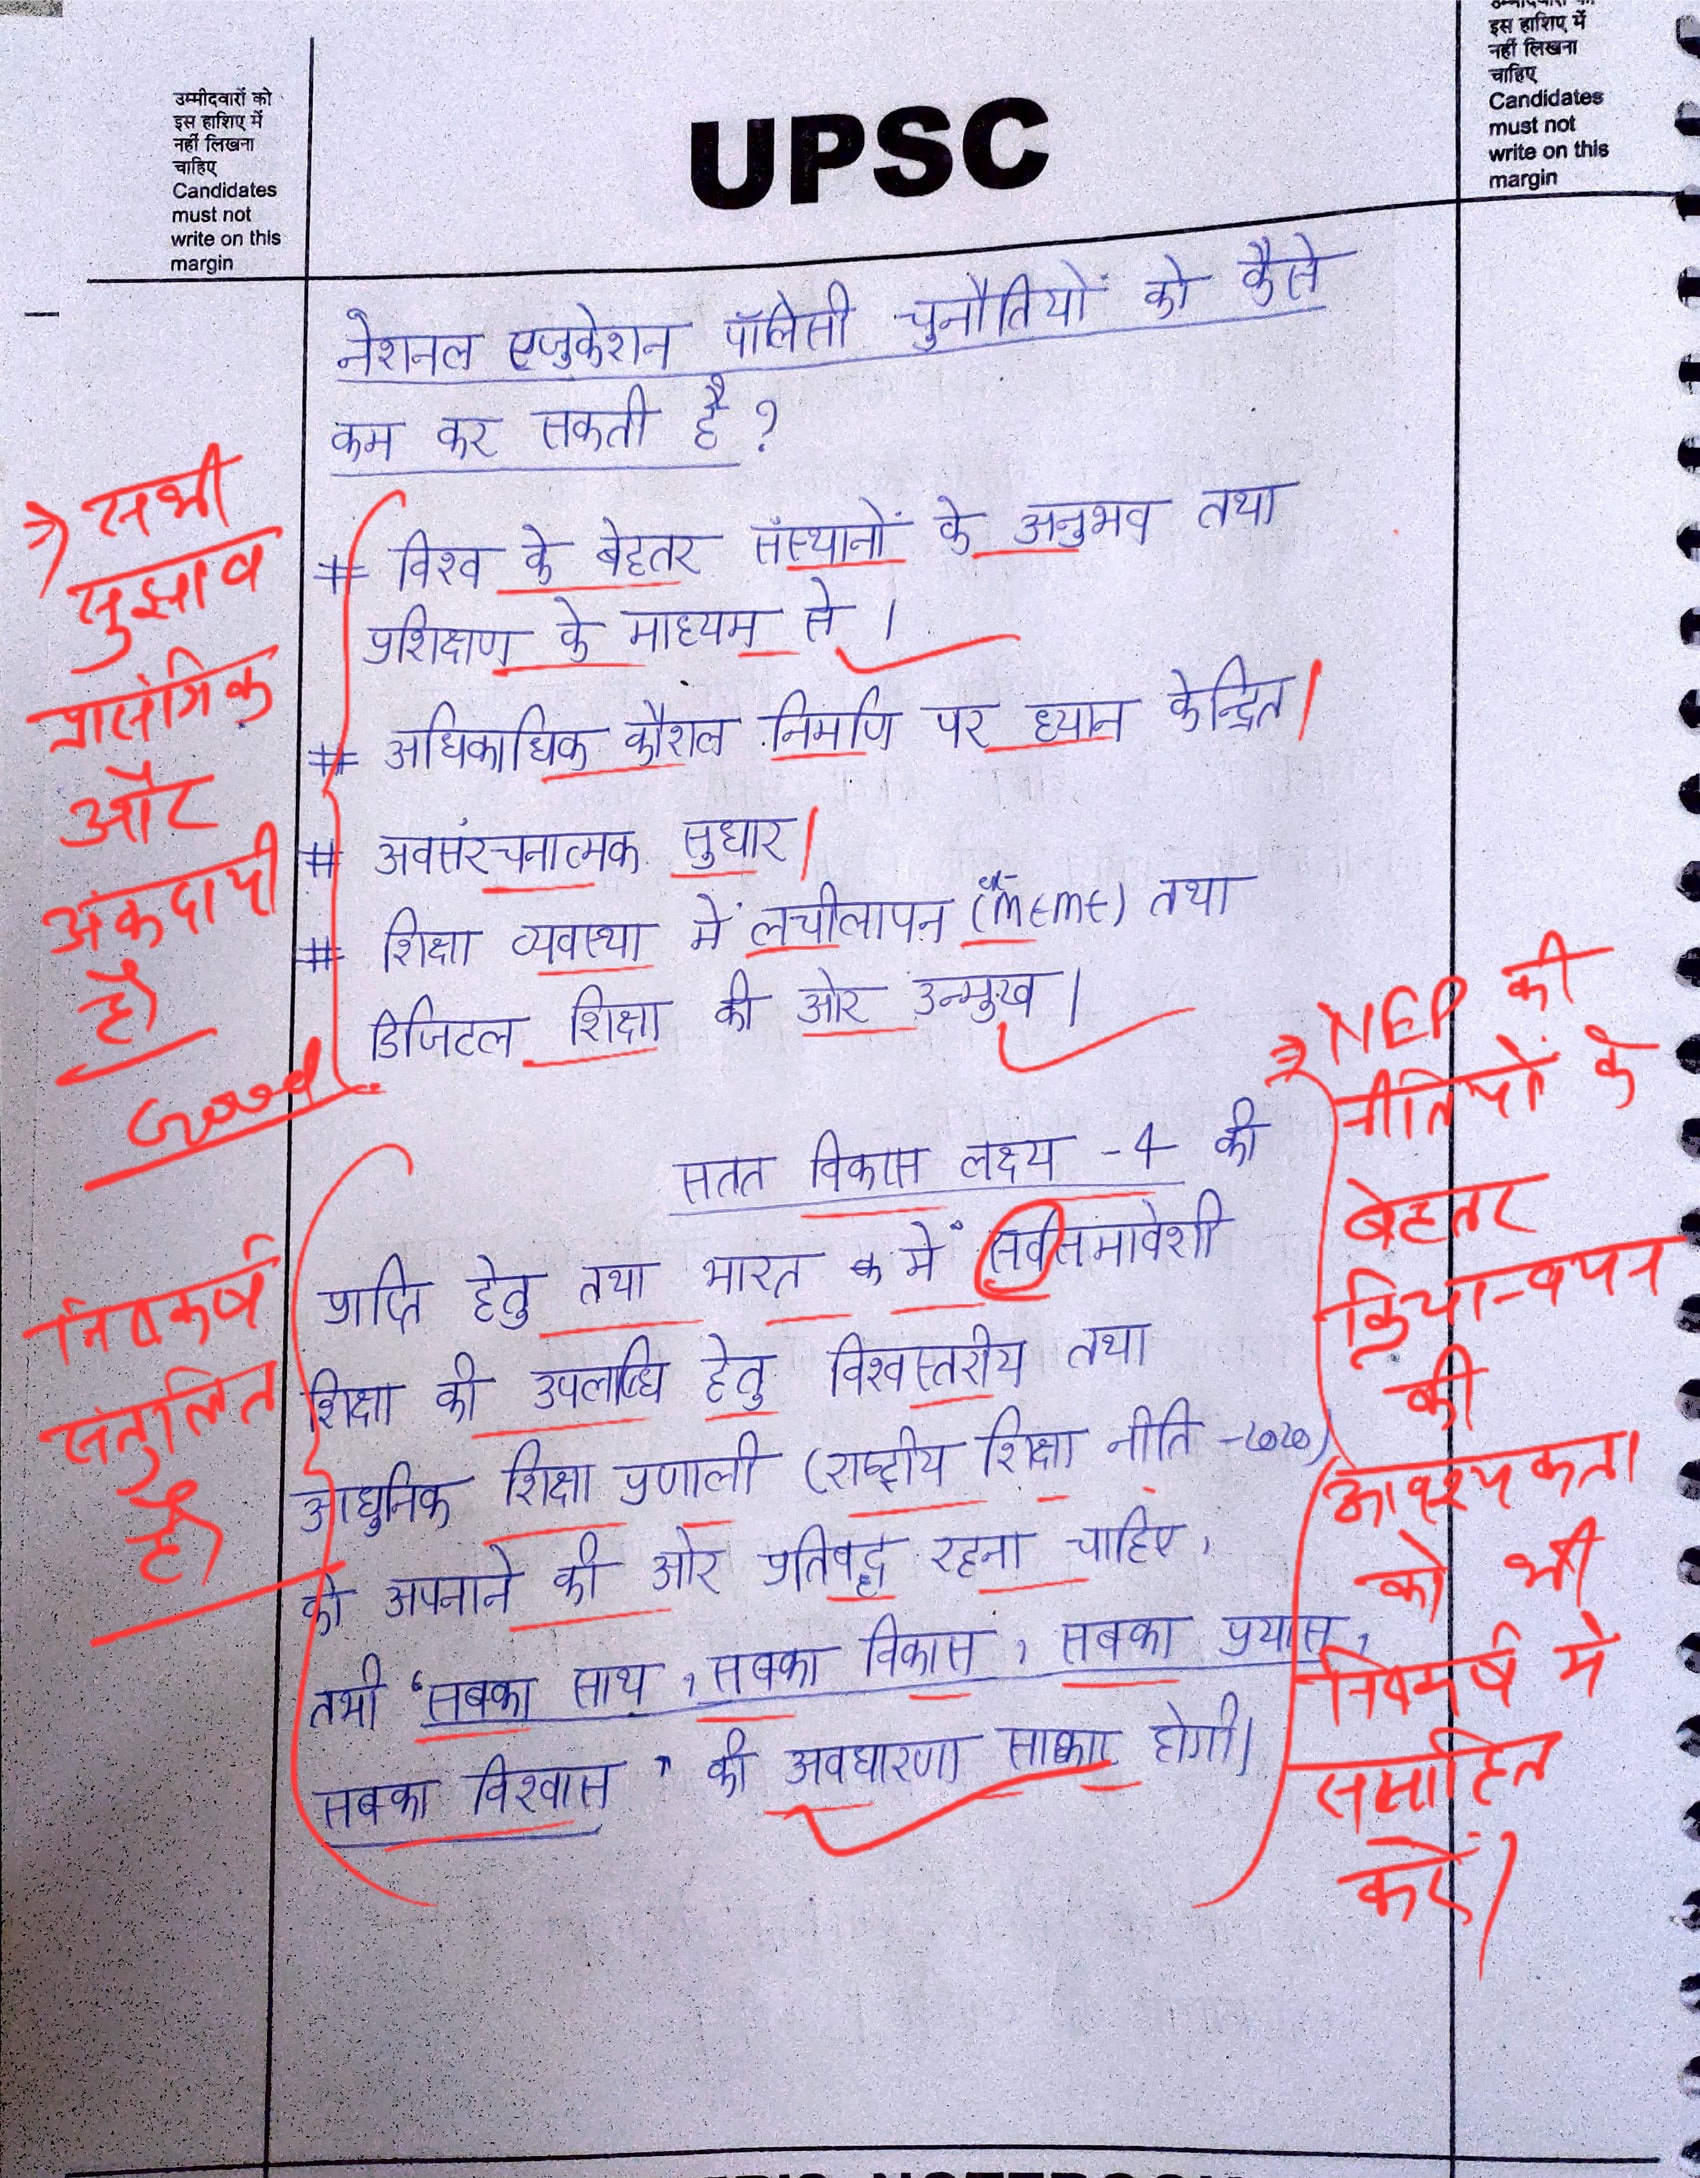 उम्मीदवारों को
इस हाशिए में
नहीं लिखना
चाहिए
Candidates
must not
write on this
margin
UPSC
इस हाशिए में
नहीं लिखना
चाहिए
Candidates
must not
write on this
margin
नेशनल एजुकेशन पॉलिसी चुनौतियों को कैसे
कम कर सकती है ?
# विश्व के बेहतर संस्थानों के अनुभव तथा
प्रशिक्षण के माध्यम से ।
# अधिकाधिक कौशल निर्माण पर ध्यान केन्द्रित।
# अवसंरचनात्मक सुधार।
# शिक्षा व्यवस्था में लचीलापन तथा
डिजिटल शिक्षा की ओर उन्मुख ।
सतत विकास लक्ष्य - 4 की
प्राप्ति हेतु तथा भारत में सर्वसमावेशी
शिक्षा की उपलब्धि हेतु विश्वस्तरीय तथा
आधुनिक शिक्षा प्रणाली (राष्ट्रीय शिक्षा नीति -2020)
को अपनाने की ओर प्रतिबद्ध रहना चाहिए,
तभी "सबका साथ, सबका विकास, सबका प्रयास,
सबका विश्वास" की अवधारणा साकार होगी।
→ सभी
सुझाव
प्रासंगिक
और
अंकदायी
है।
Good
निष्कर्ष
संतुलित
है।
→ NEP की
नीतियों के
बेहतर
क्रियान्वयन
की
आवश्यकता
को भी
निष्कर्ष में
समाहित
करें।